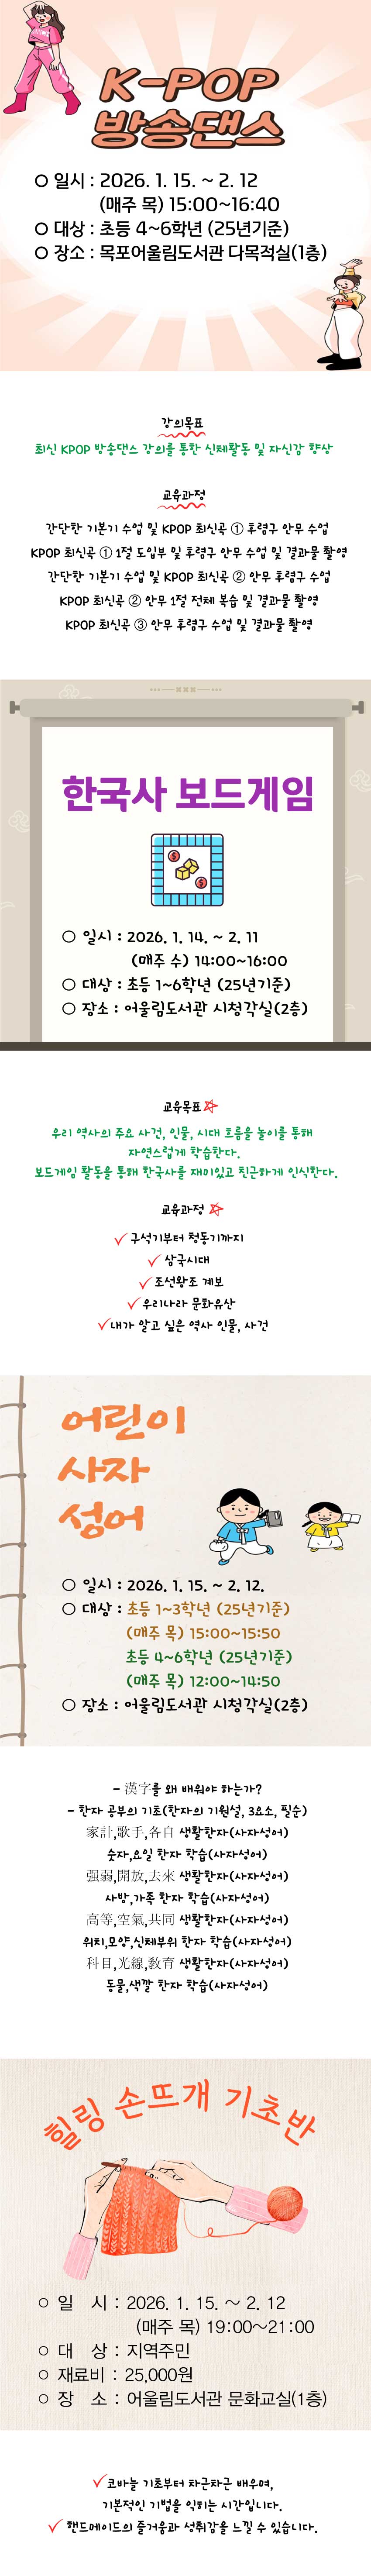 K-POP
방송댄스
○ 일시 : 2026. 1. 15. ~ 2. 12
(매주 목) 15:00~16:40
○ 대상 : 초등 4~6학년 (25년기준)
○ 장소 : 목포어울림도서관 다목적실(1층)
강의목표
최신 KPOP 방송댄스 강의를 통한 신체활동 및 자신감 향상
교육과정
간단한 기본기 수업 및 KPOP 최신곡 ① 후렴구 안무 수업
KPOP 최신곡 ① 1절 도입부 및 후렴구 안무 수업 및 결과물 촬영
간단한 기본기 수업 및 KPOP 최신곡 ② 안무 후렴구 수업
KPOP 최신곡 ② 안무 1절 전체 복습 및 결과물 촬영
KPOP 최신곡 ③ 안무 후렴구 수업 및 결과물 촬영
한국사 보드게임
○ 일시 : 2026. 1. 14. ~ 2. 11
(매주 수) 14:00~16:00
○ 대상 : 초등 1~6학년 (25년기준)
○ 장소 : 어울림도서관 시청각실(2층)
교육목표
우리 역사의 주요 사건, 인물, 시대 흐름을 놀이를 통해
자연스럽게 학습한다.
보드게임 활동을 통해 한국사를 재미있고 친근하게 인식한다.
교육과정
구석기부터 청동기까지
삼국시대
조선왕조 계보
우리나라 문화유산
내가 알고 싶은 역사 인물, 사건
어린이
사자
성어
○ 일시 : 2026. 1. 15. ~ 2. 12.
○ 대상 : 초등 1~3학년 (25년기준)
(매주 목) 15:00~15:50
초등 4~6학년 (25년기준)
(매주 목) 12:00~14:50
○ 장소 : 어울림도서관 시청각실(2층)
- 漢字를 왜 배워야 하는가?
- 한자 공부의 기초(한자의 기원설, 3요소, 필순)
家計,歌手,各自 생활한자(사자성어)
숫자,요일 한자 학습(사자성어)
强弱,開放,去來 생활한자(사자성어)
사방,가족 한자 학습(사자성어)
高等,空氣,共同 생활한자(사자성어)
위치,모양,신체부위 한자 학습(사자성어)
科目,光線,敎育 생활한자(사자성어)
동물,색깔 한자 학습(사자성어)
힐링 손뜨개 기초반
○ 일 시 : 2026. 1. 15. ~ 2. 12
(매주 목) 19:00~21:00
○ 대 상 : 지역주민
○ 재료비 : 25,000원
○ 장 소 : 어울림도서관 문화교실(1층)
코바늘 기초부터 차근차근 배우며,
기본적인 기법을 익히는 시간입니다.
핸드메이드의 즐거움과 성취감을 느낄 수 있습니다.